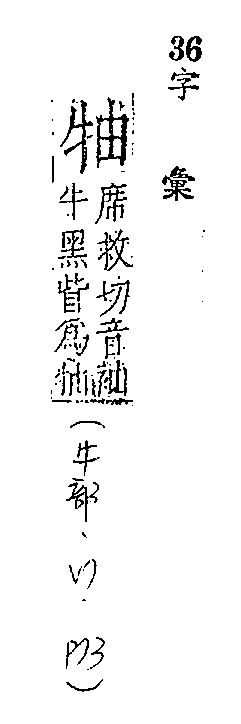 36
字彙
牰
席救切音袖
牛黑眥爲牰
(牛部、